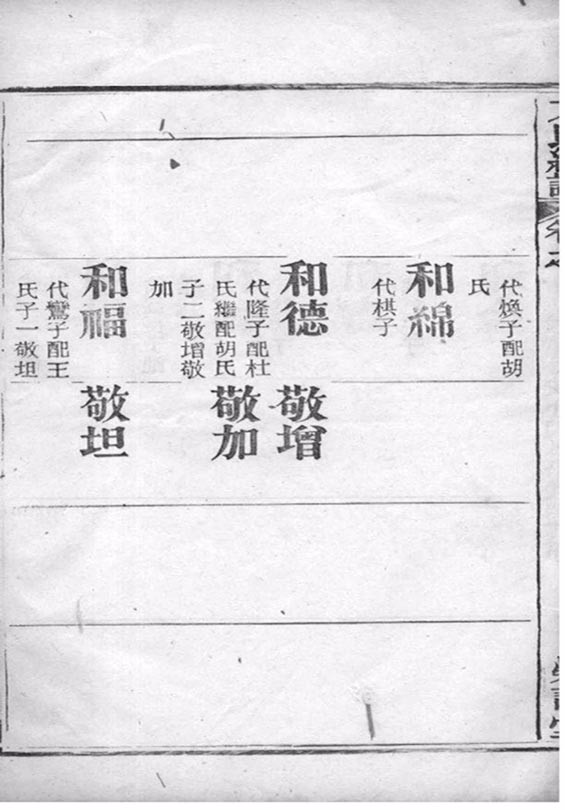 代煥子配胡
氏
和綿
代棋子
和德
代隆子配杜
氏繼配胡氏
子二敬增敬
加
和福
代鸞子配王
氏子一敬坦
敬增
敬加
敬坦